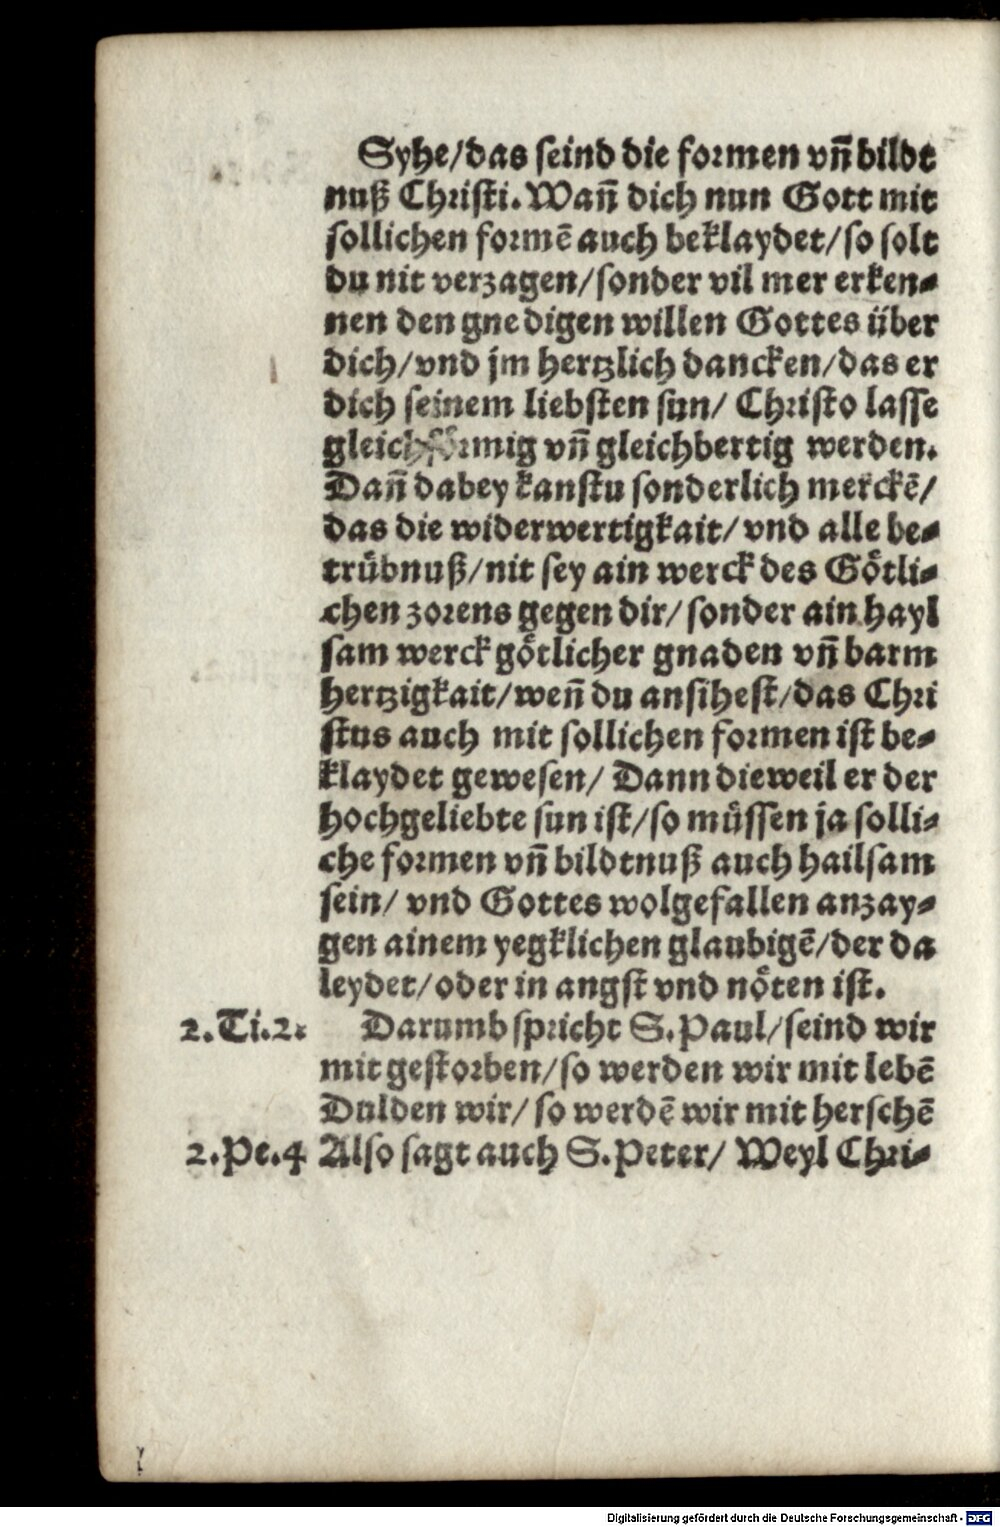 Syhe/das seind die formen vn̄ bildt
nuß Christi. Wan̄ dich nun Gott mit
sollichen formē auch beklaydet/so solt
du nit verzagen/sonder vil mer erken-
nen den gnedigen willen Gottes über
dich/vnd jm hertzlich dancken/das er
dich seinem liebsten sun/ Christo lasse
gleichförmig vn̄ gleichbertig werden.
Dan̄ dabey kanstu sonderlich merckē/
das die widerwertigkait/vnd alle be-
trübnuß/nit sey ain werck des Götli-
chen zorens gegen dir/sonder ain hayl
sam werck götlicher gnaden vn̄ barm
hertzigkait/wen̄ du ansihest/das Chri
stus auch mit sollichen formen ist be-
klaydet gewesen/ Dann dieweil er der
hochgeliebte sun ist/so müssen ja solli-
che formen vn̄ bildtnuß auch hailsam
sein/ vnd Gottes wolgefallen anzay-
gen ainem yegklichen glaubigē/der da
leydet/oder in angst vnd nöten ist.
2.Ti.2. Darumb spricht S.Paul/seind wir
mit gestorben/so werden wir mit lebē
Dulden wir/ so werdē wir mit herschē
2.Pe.4 Also sagt auch S.Peter/ Weyl Chri-
Digitalisierung gefördert durch die Deutsche Forschungsgemeinschaft - DFG